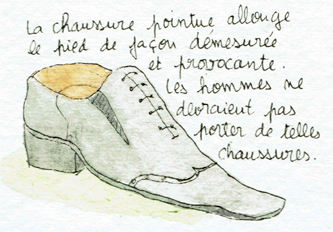 La chaussure pointue allonge
le pied de façon démesurée
et provocante.
Les hommes ne
devraient pas
porter de telles
chaussures.